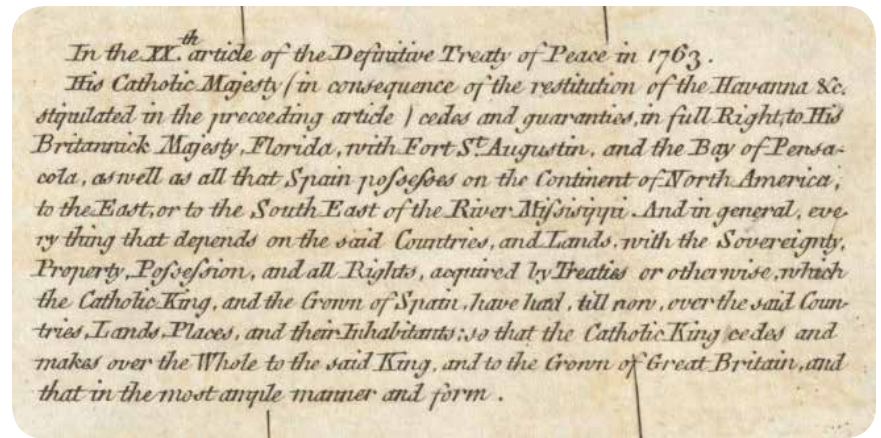 In the XX.th article of the Definitive Treaty of Peace in 1763.
His Catholic Majesty (in consequence of the restitution of the Havanna &c.
stipulated in the preceeding article) cedes and guaranties, in full Right, to His
Britannick Majesty, Florida, with Fort St. Augustin, and the Bay of Pensa-
cola, as well as all that Spain poſseſses on the Continent of North America,
to the East, or to the South East of the River Miſsisippi. And in general, eve-
ry thing that depends on the said Countries, and Lands, with the Sovereignty,
Property, Poſseſsion, and all Rights, acquired by Treaties or otherwise, which
the Catholic King, and the Crown of Spain, have had, till now, over the said Coun-
tries, Lands, Places, and their Inhabitants; so that the Catholic King cedes and
makes over the Whole to the said King, and to the Crown of Great Britain, and
that in the most ample manner and form.